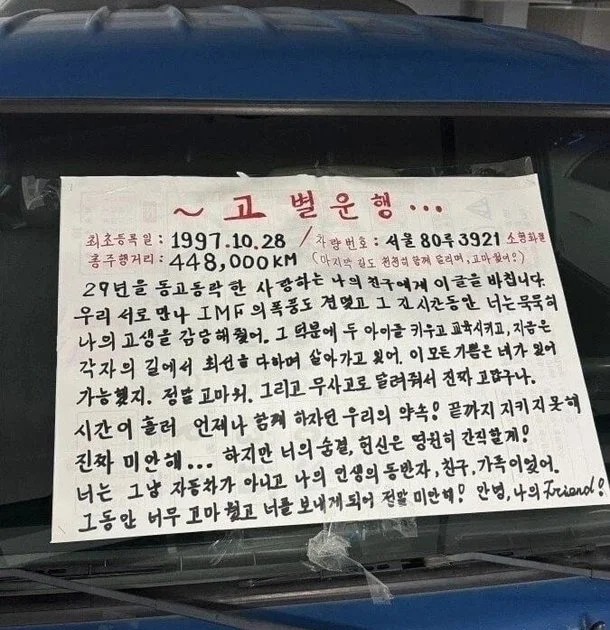 ~ 고 별 운 행 ...
최초등록일 : 1997.10.28 / 차량번호 : 서울80루3921 소형화물
총주행거리 : 448,000KM (마지막 길도 천천히 함께 달리며, 고마웠어!)
29년을 동고동락 한 사랑하는 나의 친구에게 이 글을 바칩니다.
우리 서로 만나 IMF의 폭풍도 견뎠고 그 긴시간동안 너는 묵묵히
나의 고생을 감당해줬어. 그 덕분에 두 아이를 키우고 교육시키고, 지금은
각자의 길에서 최선을 다하며 살아가고 있어. 이 모든 기쁨은 네가 있어
가능했지. 정말 고마워. 그리고 무사고로 달려줘서 진짜 고맙구나.
시간이 흘러 언제나 함께 하자던 우리의 약속! 끝까지 지키지 못해
진짜 미안해... 하지만 너의 숨결, 헌신은 영원히 간직할게!
너는 그냥 자동차가 아니고 나의 인생의 동반자, 친구, 가족이었어.
그동안 너무 고마웠고 너를 보내게 되어 정말 미안해! 안녕, 나의 Friend!